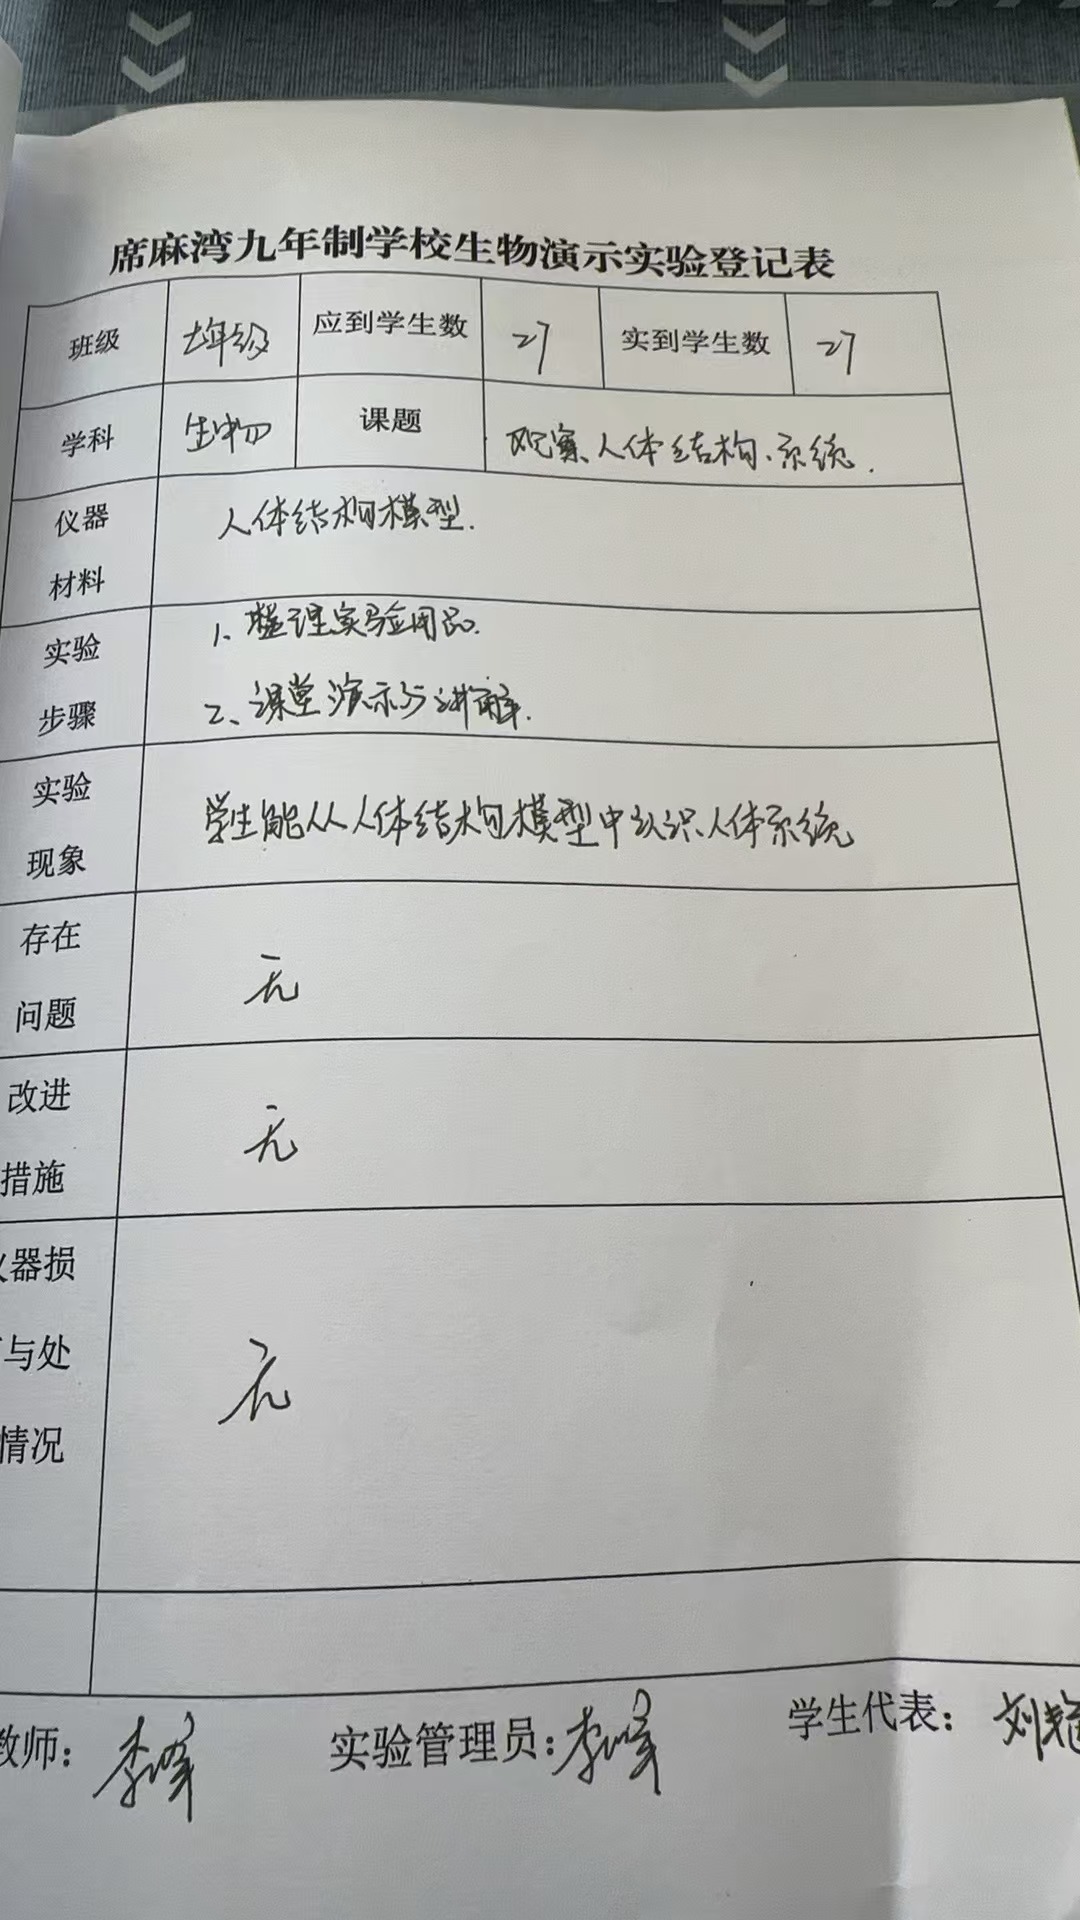 席麻湾九年制学校生物演示实验登记表
班级 七年级 应到学生数 27 实到学生数 27
学科 生物 课题 观察人体结构、系统.
仪器
材料
人体结构模型.
实验
步骤
1、整理实验用品.
2、课堂演示与讲解.
实验
现象
学生能从人体结构模型中认识人体系统
存在
问题
无
改进
措施
无
器损
与处
情况
无
教师: 李峰 实验管理员: 李峰 学生代表: 刘